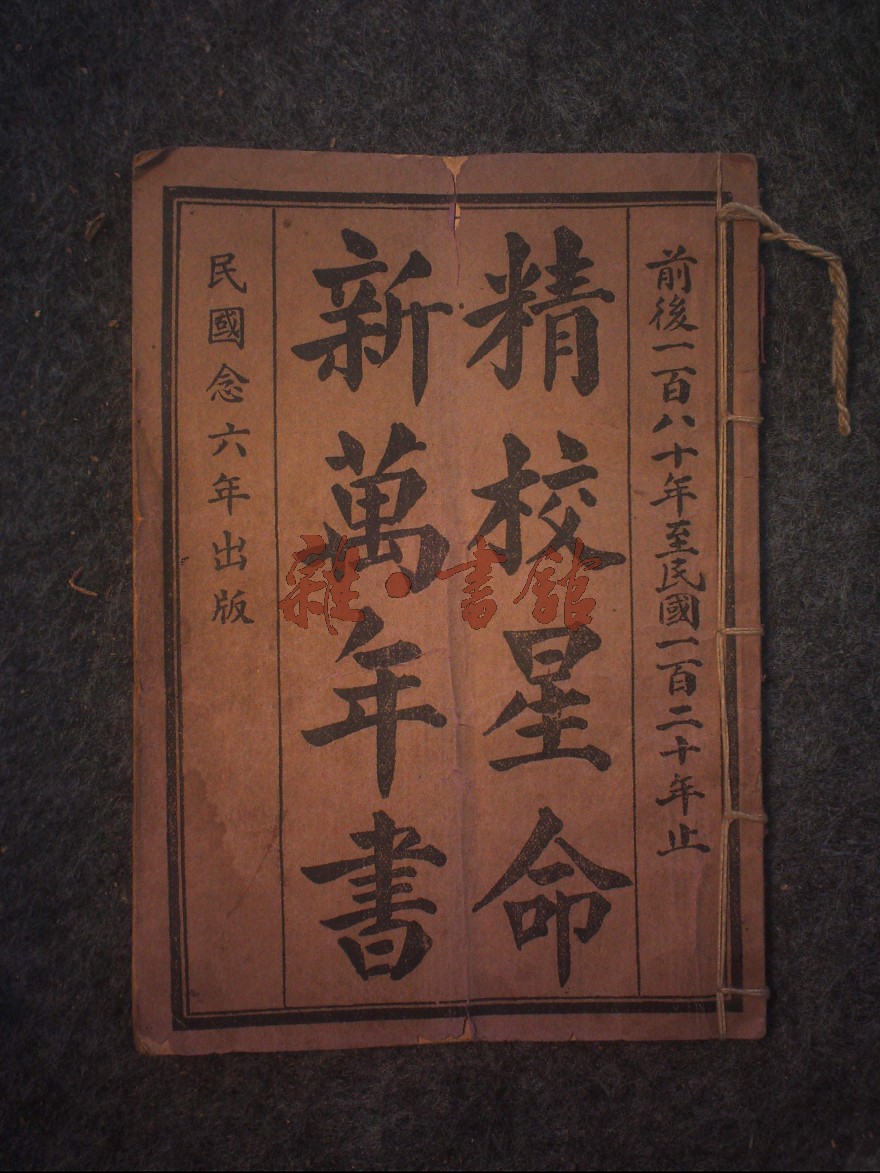 前後一百八十年至民國一百二十年止
精校星命
新萬年書
民國念六年出版
雜·書館